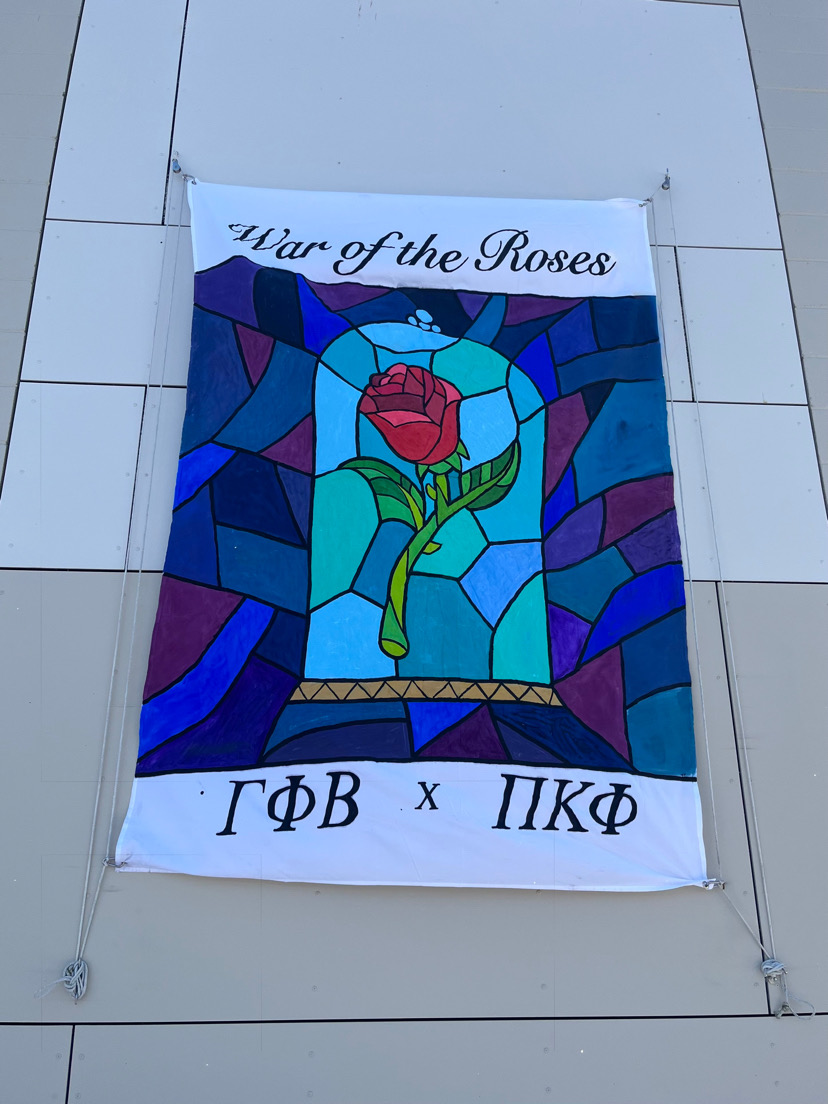 War of the Roses
ΓΦΒ x ΠΚΦ